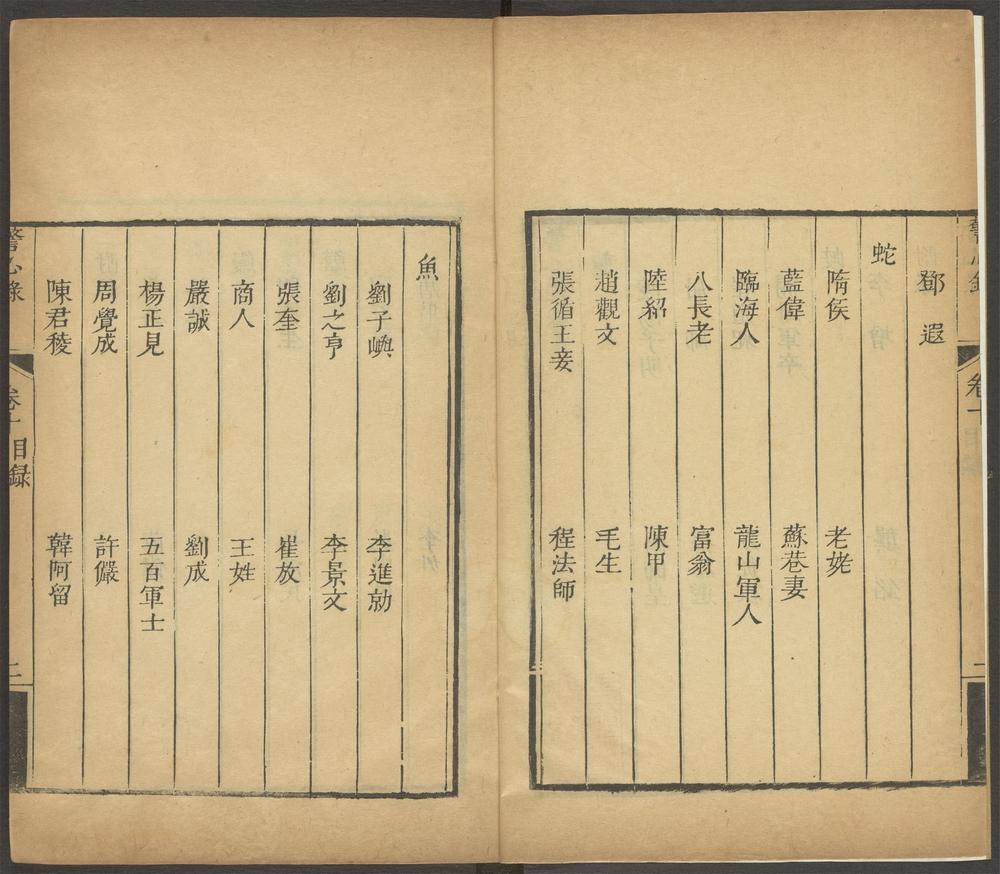 鄧遐
蛇
隋侯 老姥
藍偉 蘇巷妻
臨海人 龍山軍人
八長老 富翁
陸紹 陳甲
趙觀文 毛生
張循王妾 程法師
魚
劉子嶼 李進勍
劉之亨 李景文
張奎 崔放
商人 王姓
嚴誠 劉成
楊正見 五百軍士
周覺成 許儼
陳君稜 韓阿留
警心錄 卷十目録 二